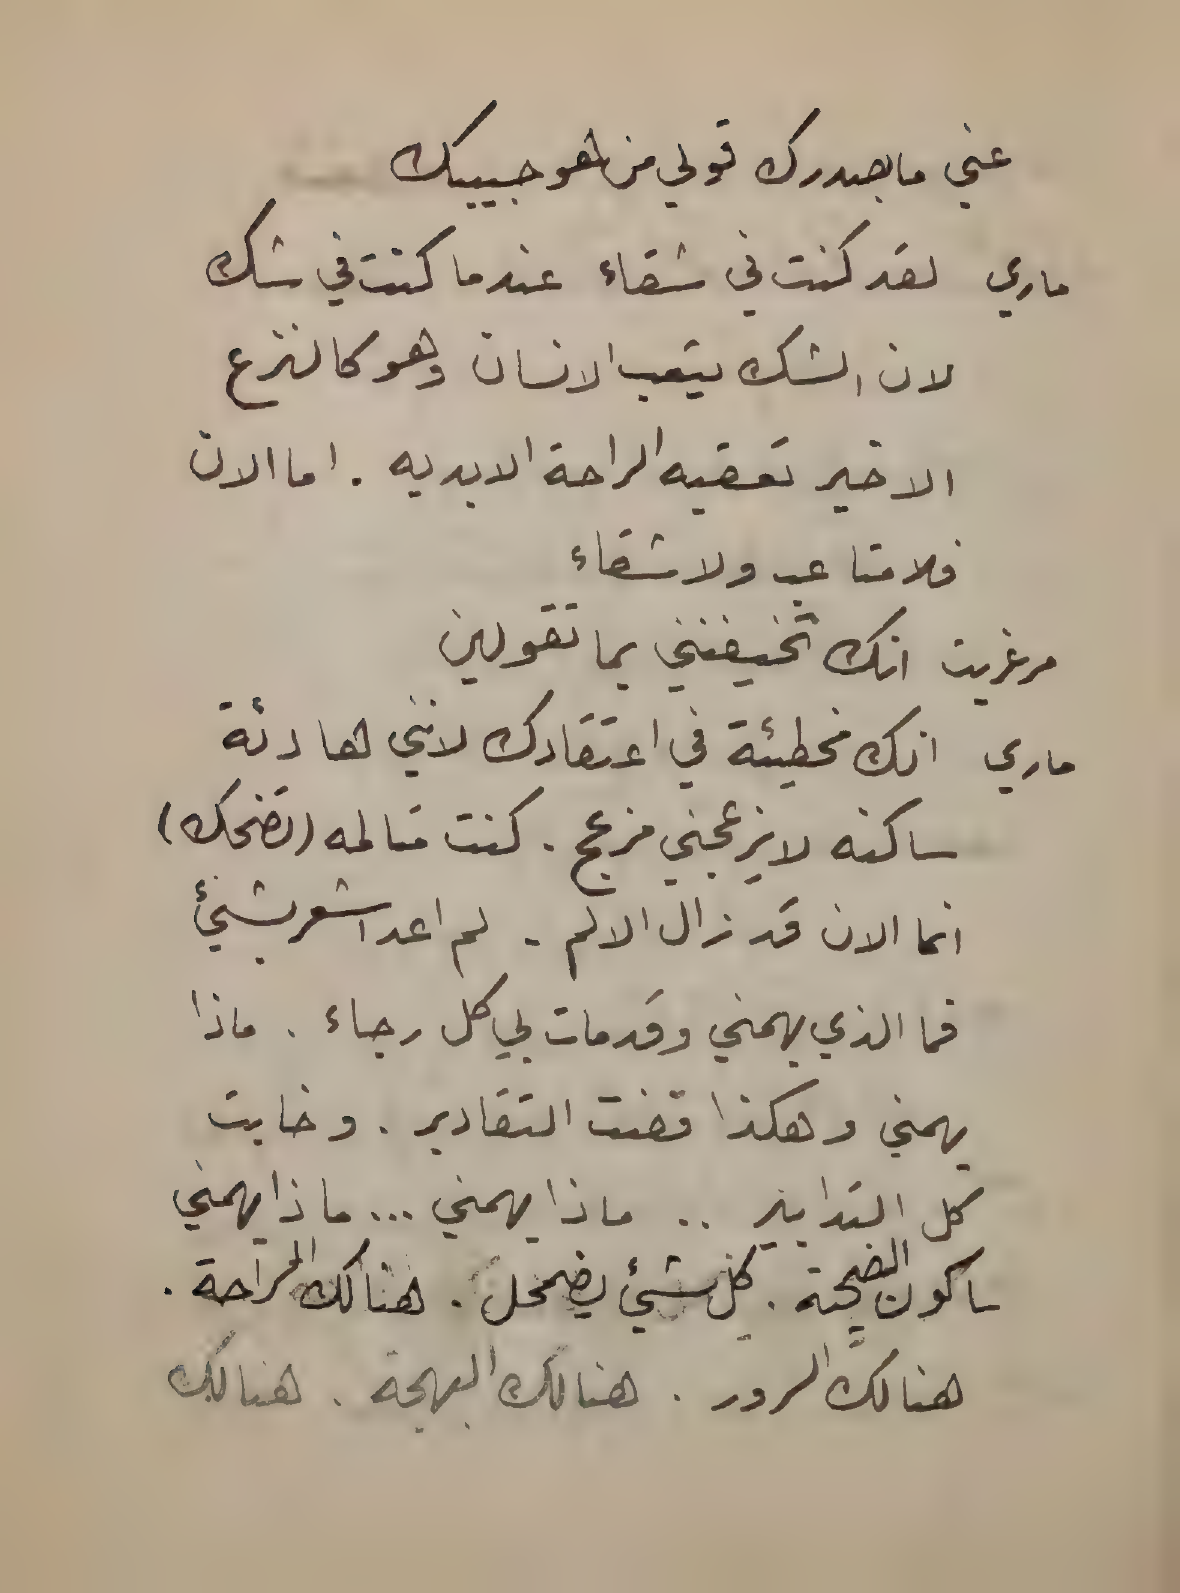 عني ما بصدرك قولي من هو حبيبك
ماري لقد كنت في شقاء عندما كنت في شك
لان الشك يتعب الانسان وهو كالنزع
الاخير تعقبه الراحة الابديه . اما الان
فلا متاعب ولا شقاء
مرغريت انك تخيفنني بما تقولين
ماري انك مخطيئة في اعتقادك لانني هادئة
ساكنه لا يزعجني مزعج . كنت متالمه (تضحك)
انما الان قد زال الالم - لم اعد اشعر بشئ
فما الذي يهمني وقد مات لي كل رجاء . ماذا
يهمني وهكذا قضت التقادير . وخابت
كل التدابير .. ماذا يهمني ... ماذا يهمني
ساكون الضحية . كل شئ يضمحل . هنالك الراحة .
هنالك السرور . هنالك البهجة . هنالك